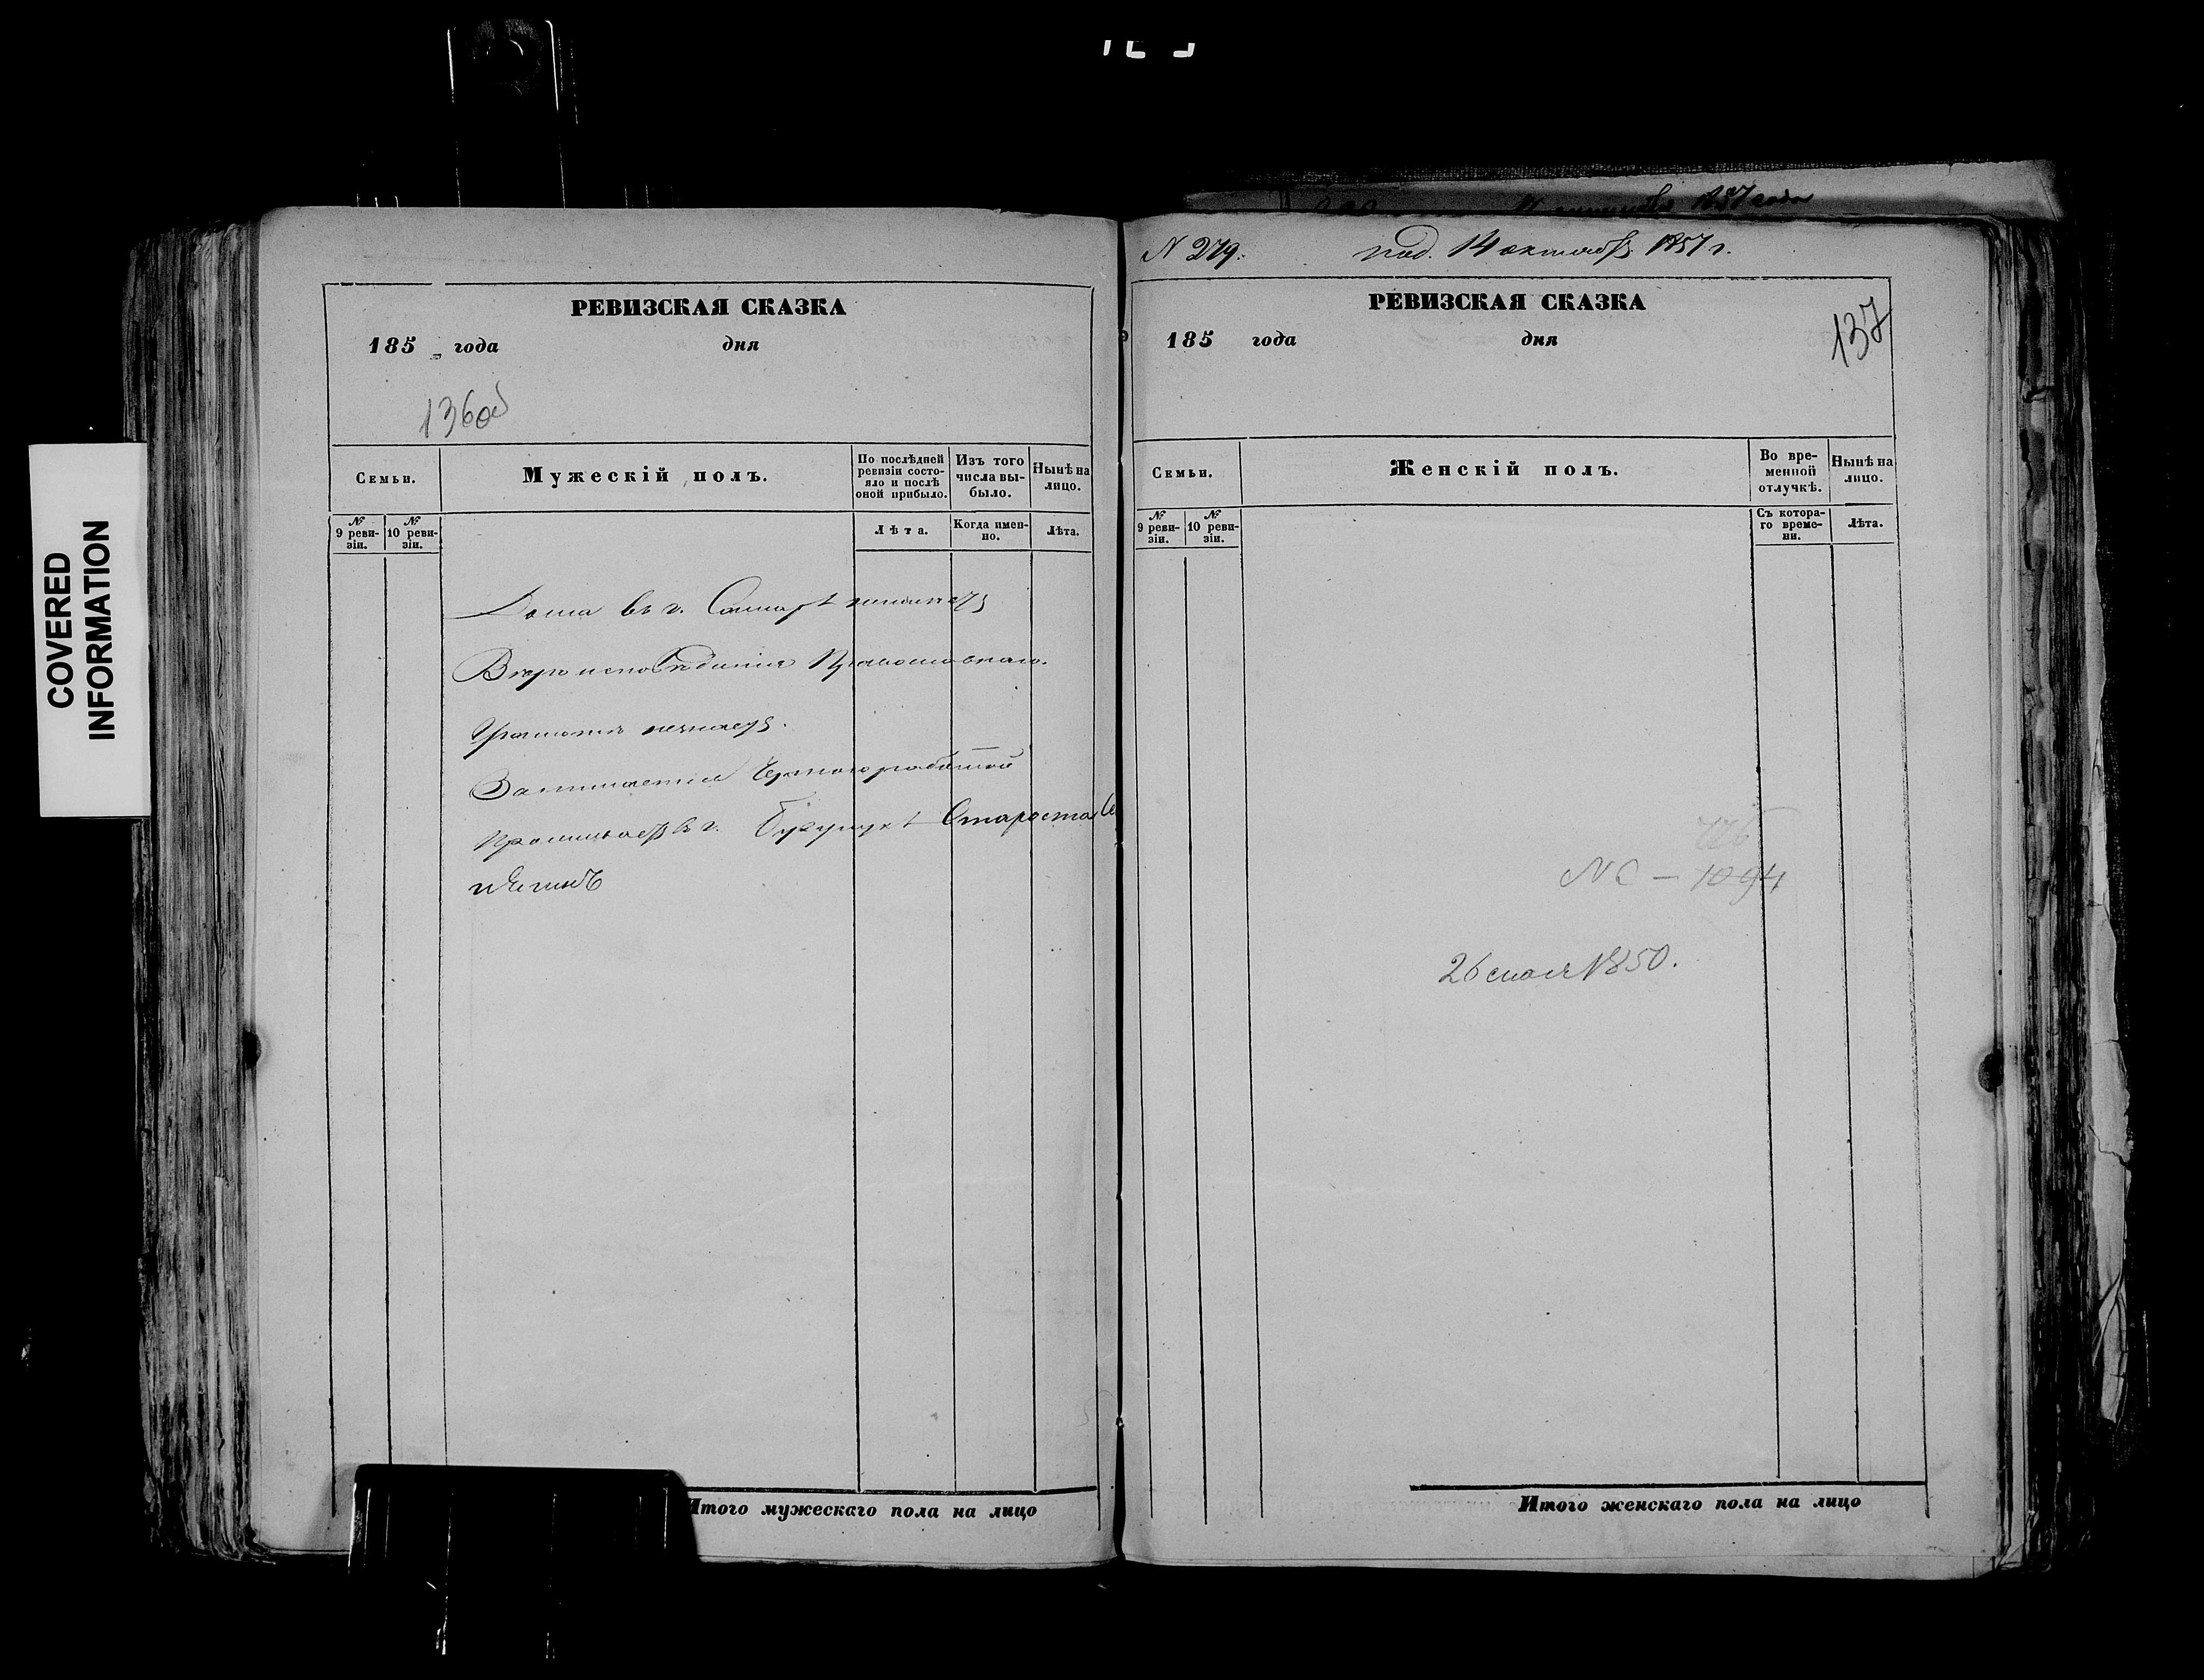 COVERED
INFORMATION
РЕВИЗСКАЯ СКАЗКА
185 года дня
136об
Семьи.
Мужескій полъ.
По послѣдней ревизіи состояло и послѣ оной прибыло.
Изъ того числа выбыло.
Нынѣ на лицо.
№ 9 ревизіи.
№ 10 ревизіи.
Лѣта.
Когда именно.
Лѣта.
Дома въ г. Самарѣ неимѣетъ
Вѣроисповѣданія Православнаго.
Грамотѣ незнаетъ.
Занимается Черною работой
Проживаетъ въ г. Староста
Итого мужескаго пола на лицо
N 279. под. 14 октября 1857 г.
РЕВИЗСКАЯ СКАЗКА
137
185 года дня
Семьи.
Женскій полъ.
Во временной отлучкѣ.
Нынѣ на лицо.
№ 9 ревизіи.
№ 10 ревизіи.
Съ котораго времени.
Лѣта.
1094
26 1850.
Итого женскаго пола на лицо